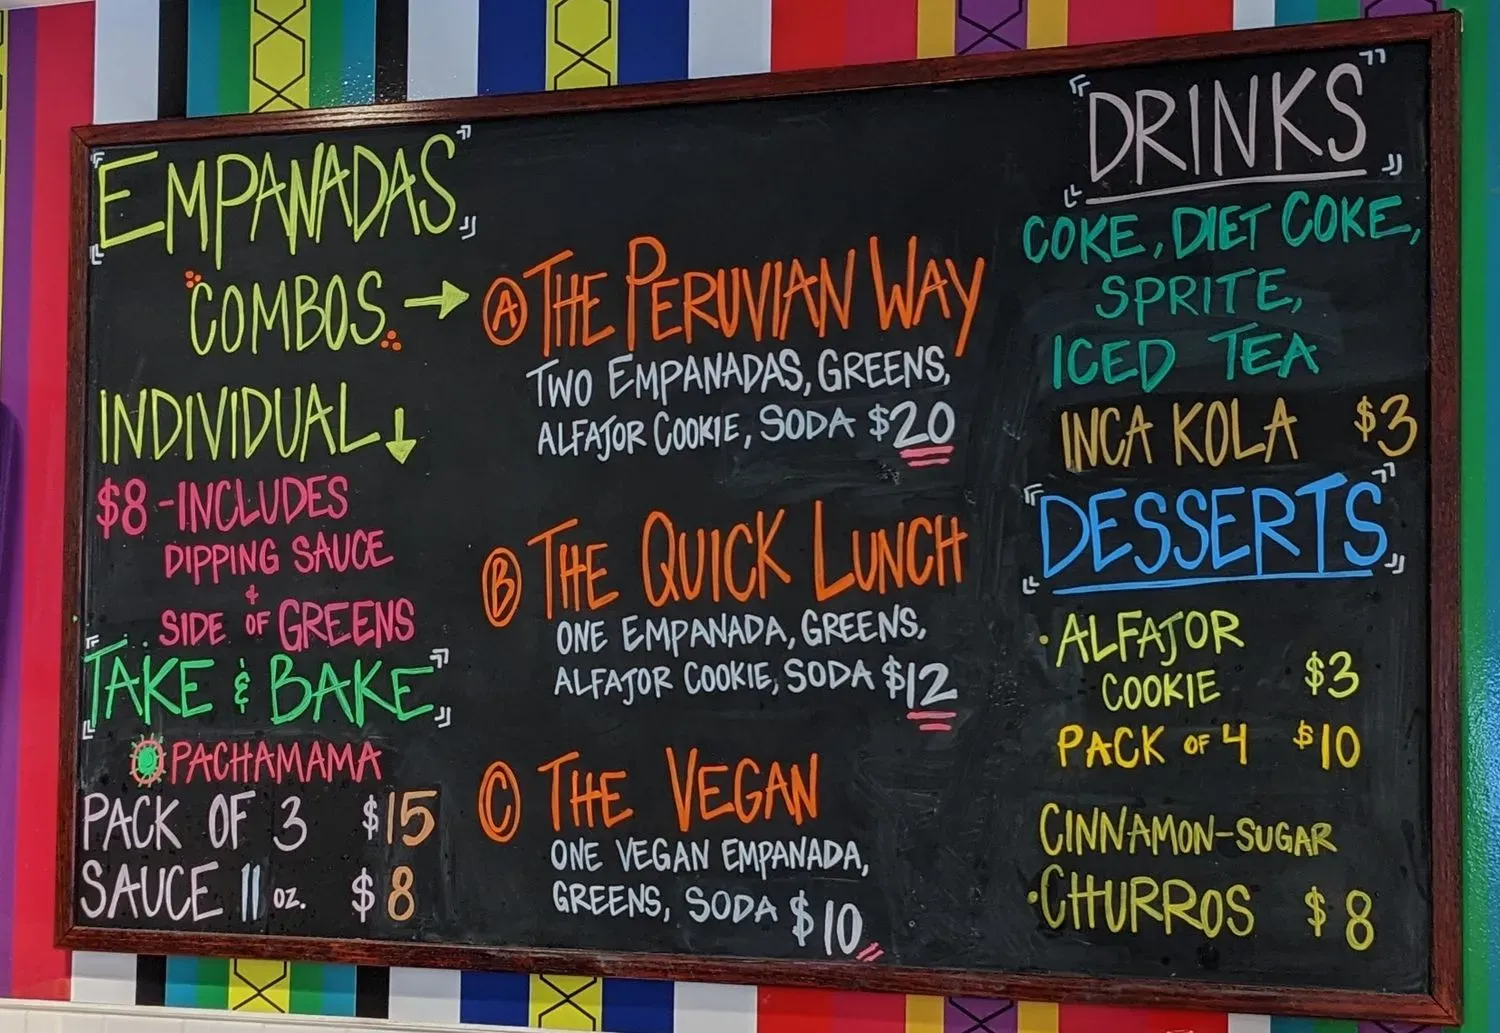 EMPANADAS
COMBOS →
INDIVIDUAL ↓
$8 - INCLUDES
DIPPING SAUCE
+
SIDE OF GREENS
TAKE & BAKE
PACHAMAMA
PACK OF 3 $15
SAUCE 11 OZ. $8
A THE PERUVIAN WAY
TWO EMPANADAS, GREENS,
ALFAJOR COOKIE, SODA $20
B THE QUICK LUNCH
ONE EMPANADA, GREENS,
ALFAJOR COOKIE, SODA $12
C THE VEGAN
ONE VEGAN EMPANADA,
GREENS, SODA $10
DRINKS
COKE, DIET COKE,
SPRITE,
ICED TEA
INCA KOLA $3
DESSERTS
· ALFAJOR
COOKIE $3
PACK OF 4 $10
CINNAMON-SUGAR
· CHURROS $8